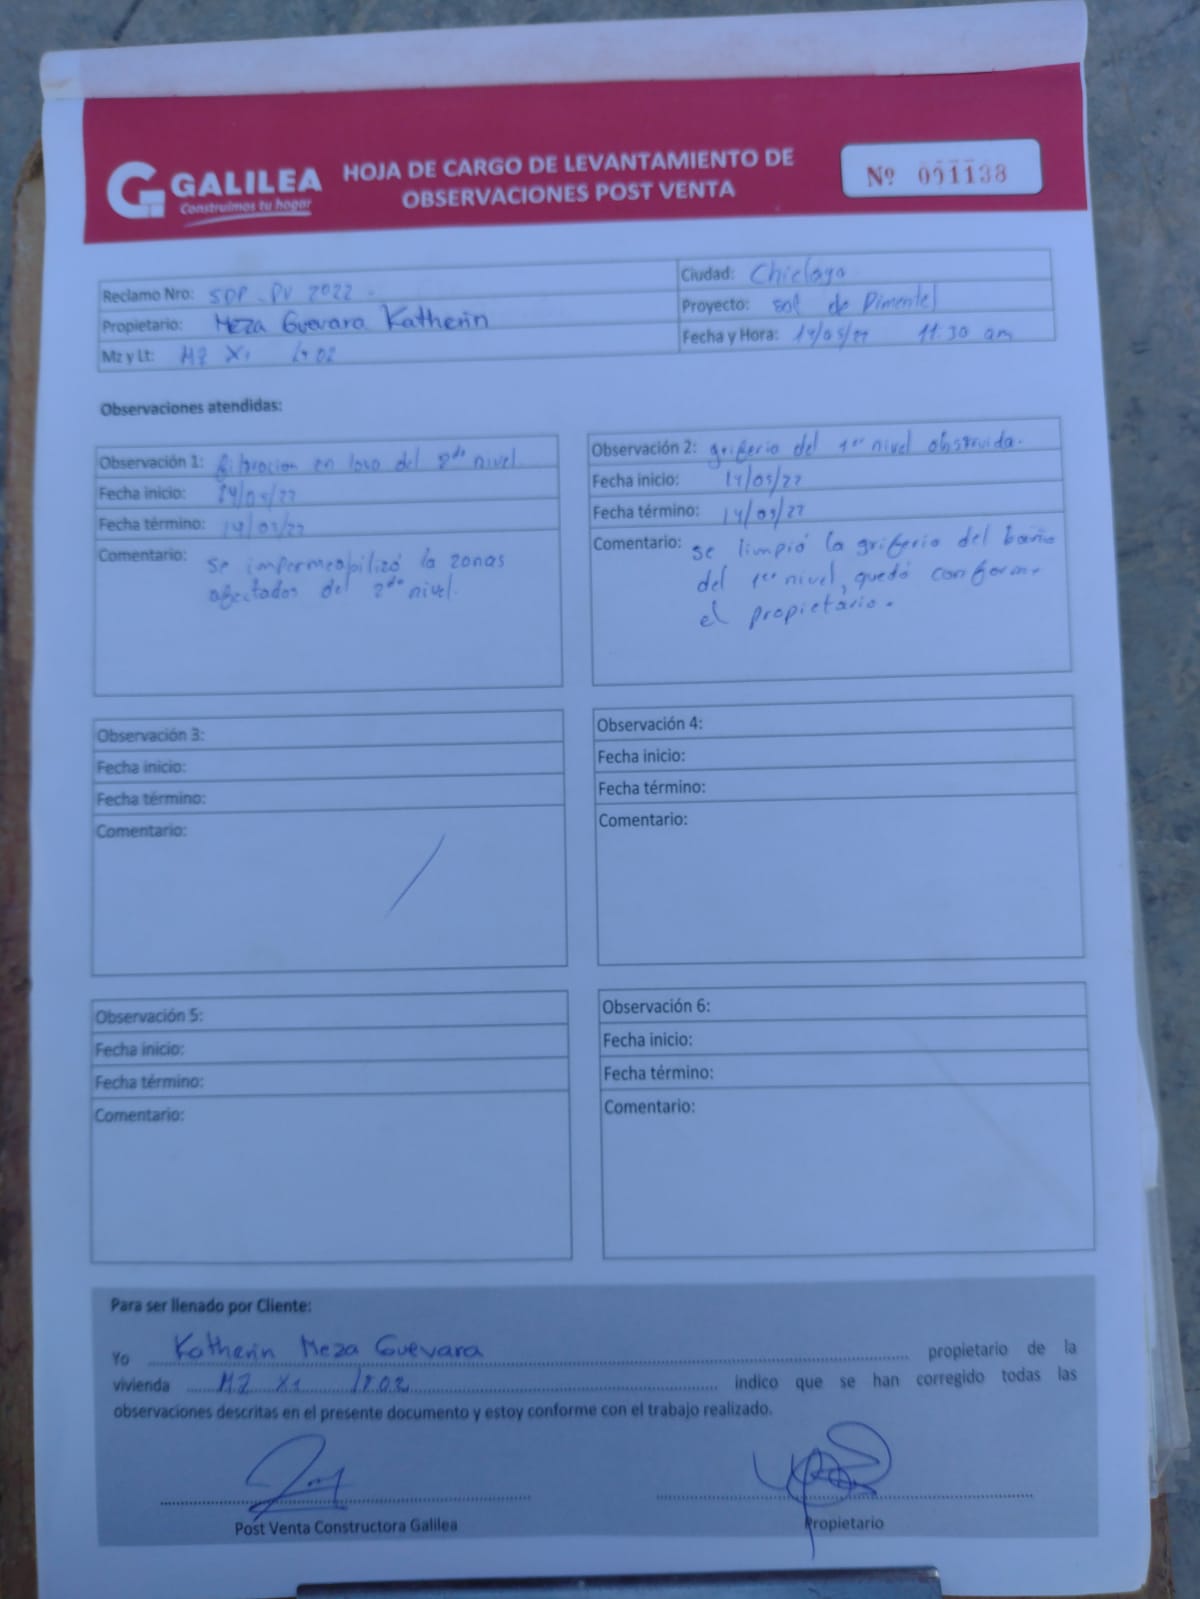 GALILEA
Construimos tu hogar
HOJA DE CARGO DE LEVANTAMIENTO DE
OBSERVACIONES POST VENTA
Nº 001138
Reclamo Nro: SDP - PV 2022 -
Propietario: Meza Guevara Katherin
Mz y Lt: Mz X1 Lt 02
Ciudad: Chiclayo
Proyecto: sol de Pimentel
Fecha y Hora: 11:30 am
Observaciones atendidas:
Observación 1: filtracion en losa del 2do nivel
Fecha inicio:
Fecha término:
Comentario: se impermeabilizó la zonas
afectados del 2do nivel.
Observación 2: griferia del 1er nivel obstruida.
Fecha inicio:
Fecha término:
Comentario: se limpió la griferia del baño
del 1er nivel, quedó conforme
el propietario.
Observación 3:
Fecha inicio:
Fecha término:
Comentario:
Observación 4:
Fecha inicio:
Fecha término:
Comentario:
Observación 5:
Fecha inicio:
Fecha término:
Comentario:
Observación 6:
Fecha inicio:
Fecha término:
Comentario:
Para ser llenado por Cliente:
Yo Katherin Meza Guevara propietario de la
vivienda Mz X1 Lt 02 indico que se han corregido todas las
observaciones descritas en el presente documento y estoy conforme con el trabajo realizado.
Post Venta Constructora Galilea
Propietario